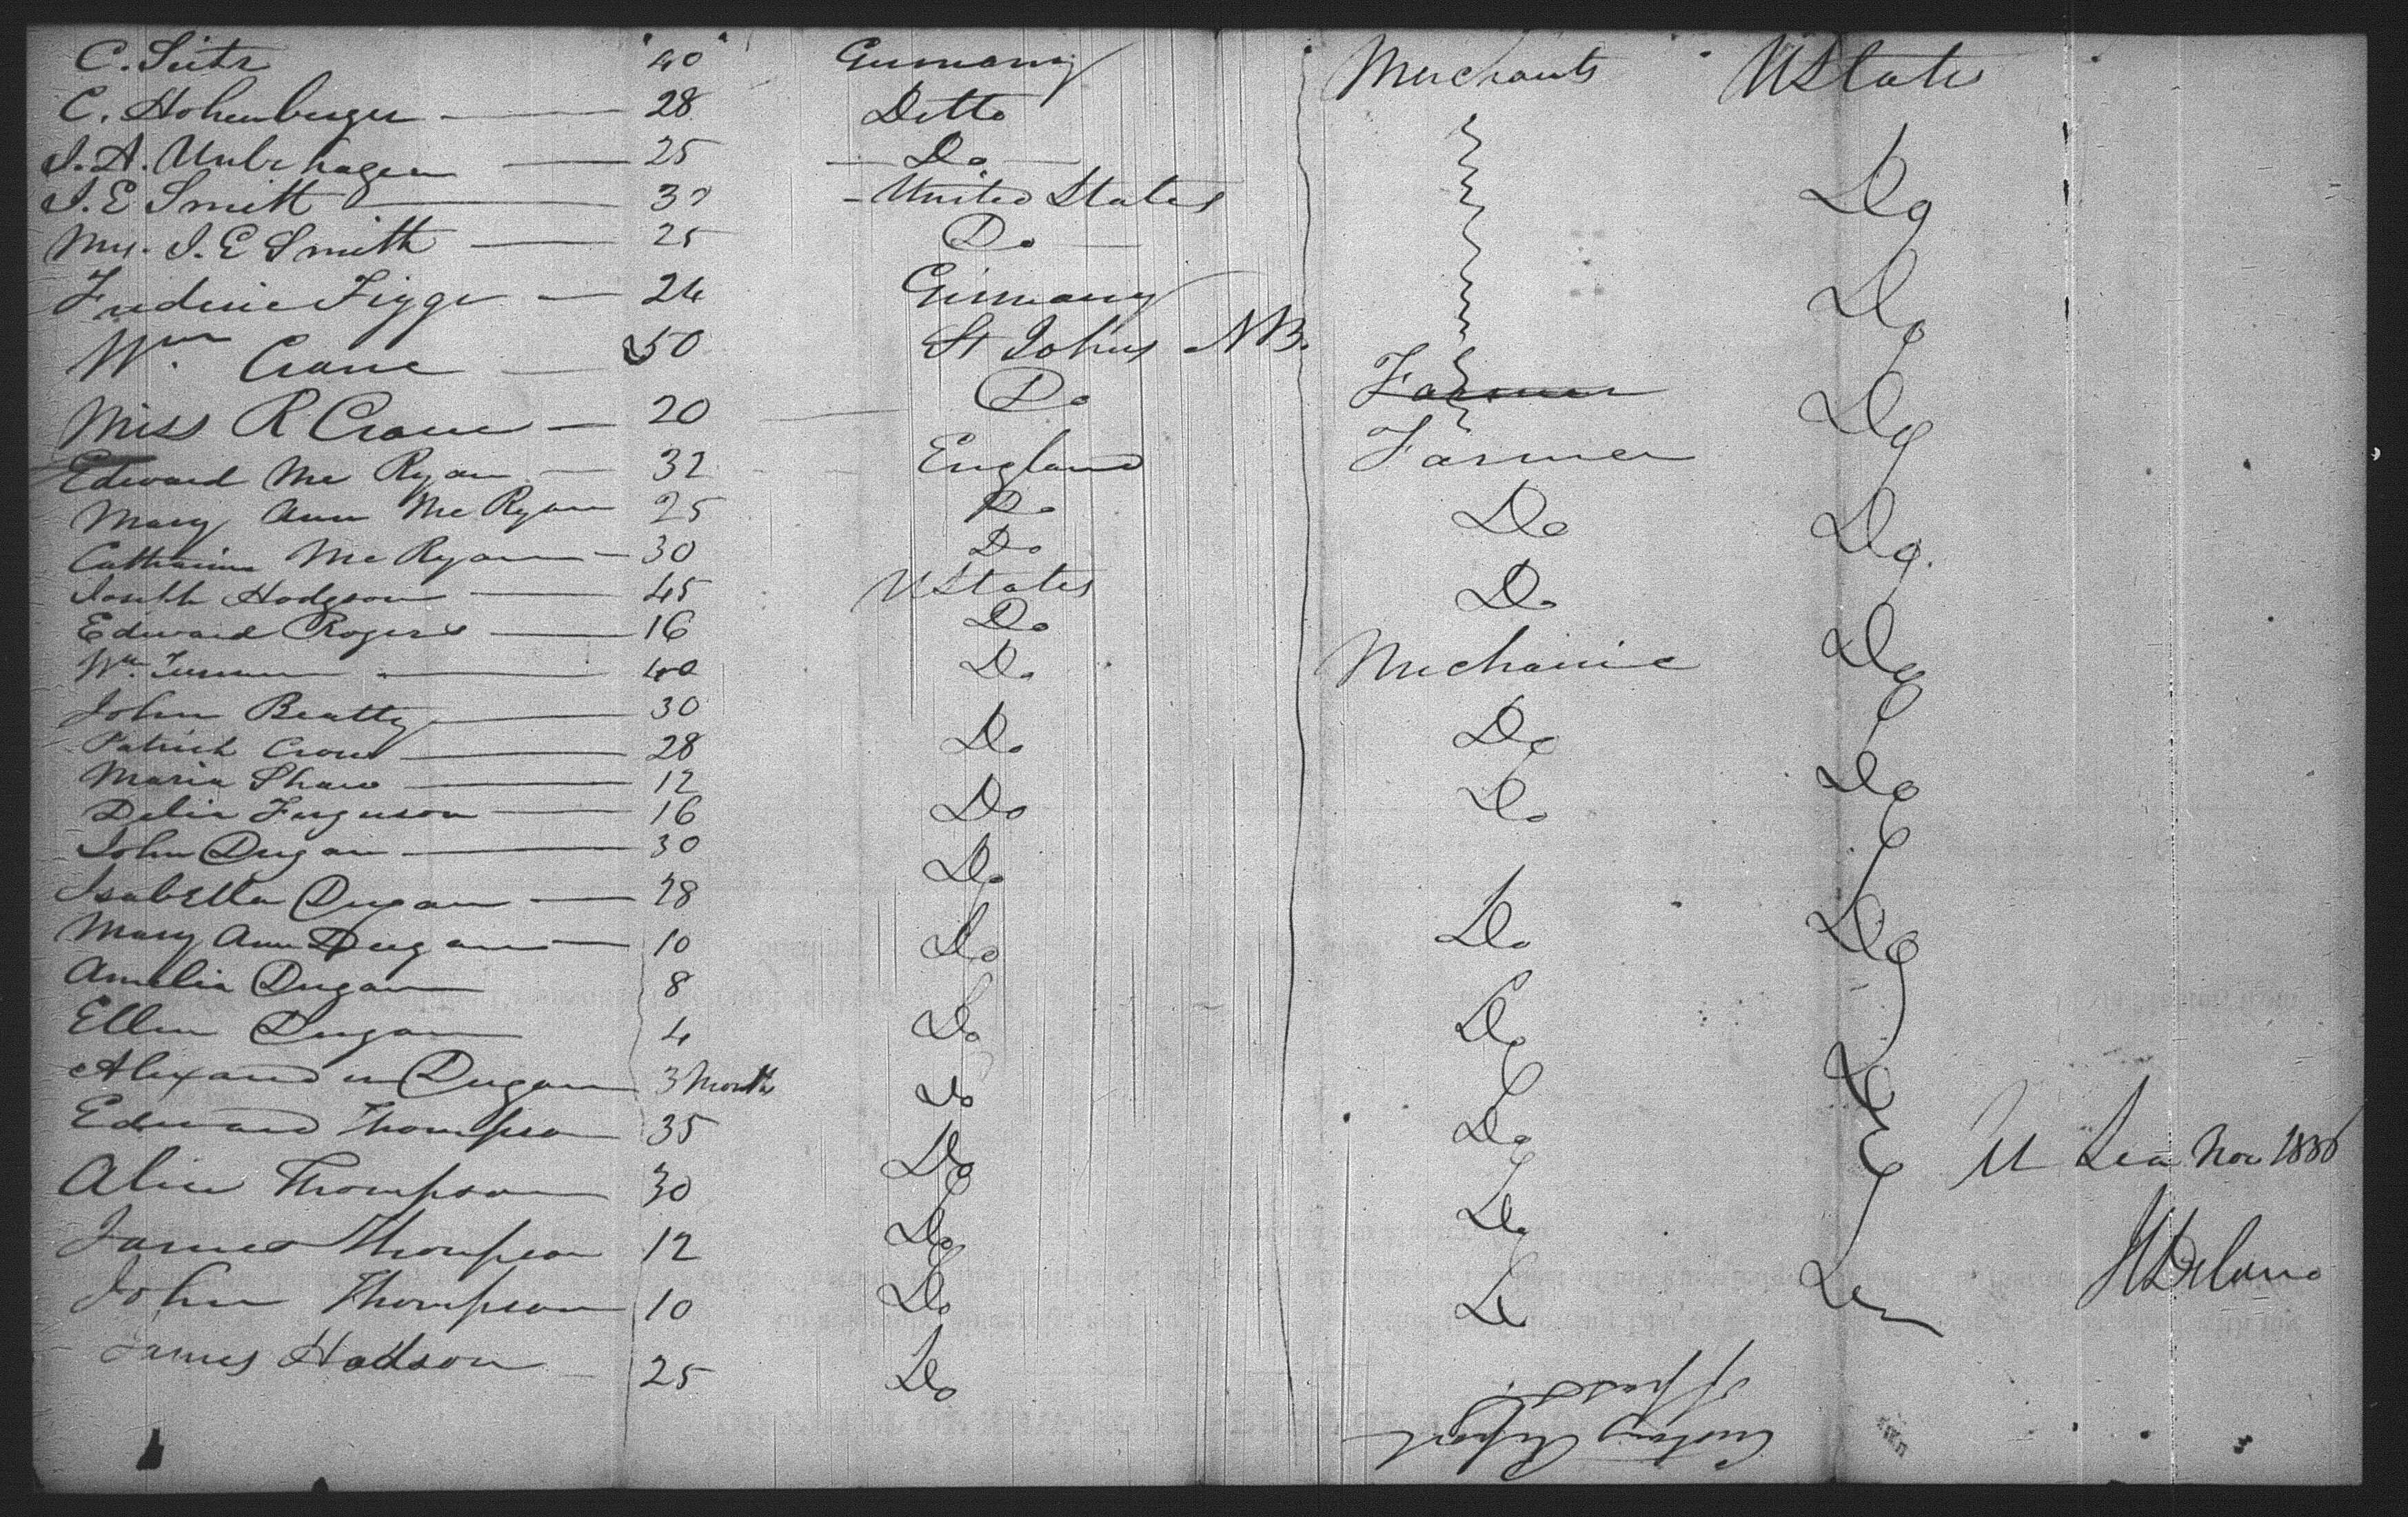 C. Seitz 40 Germany Merchants UStates
C. Hohenberger 28 Ditto
J. A. Unbehagen 25 Do Do
J. E Smith 30 United States
Mrs. J. E Smith 25 Do
Frederic Figge 24 Germany Do
Wm. Crane 50 St Johns NB.
Miss R Crane 20 Do Farmer Do
Edward Mc Ryan 32 England Farmer
Mary Ann Mc Ryan 25 Do Do Do
Catharine Mc Ryan 30 Do
Joseph Hodgson 45 UStates Do
Edward Rogers 16 Do
Wm. Turner 40 Do Mechanic Do
John Beatty 30
Patrick Crow 28 Do Do
Maria Shaw 12 Do
Delia Ferguson 16 Do Do
John Dugan 30
Isabella Dugan 28 Do
Mary Ann Dugan 10 Do Do Do
Amelia Dugan 8
Ellen Dugan 4 Do Do
Alexander Dugan 3 Month Do Do
Edward Thompson 35 Do
Alice Thompson 30 Do At Sea Nov 1836
James Thompson 12 Do Do
John Thompson 10 Do Do Do Delano
James Hodson 25 Do